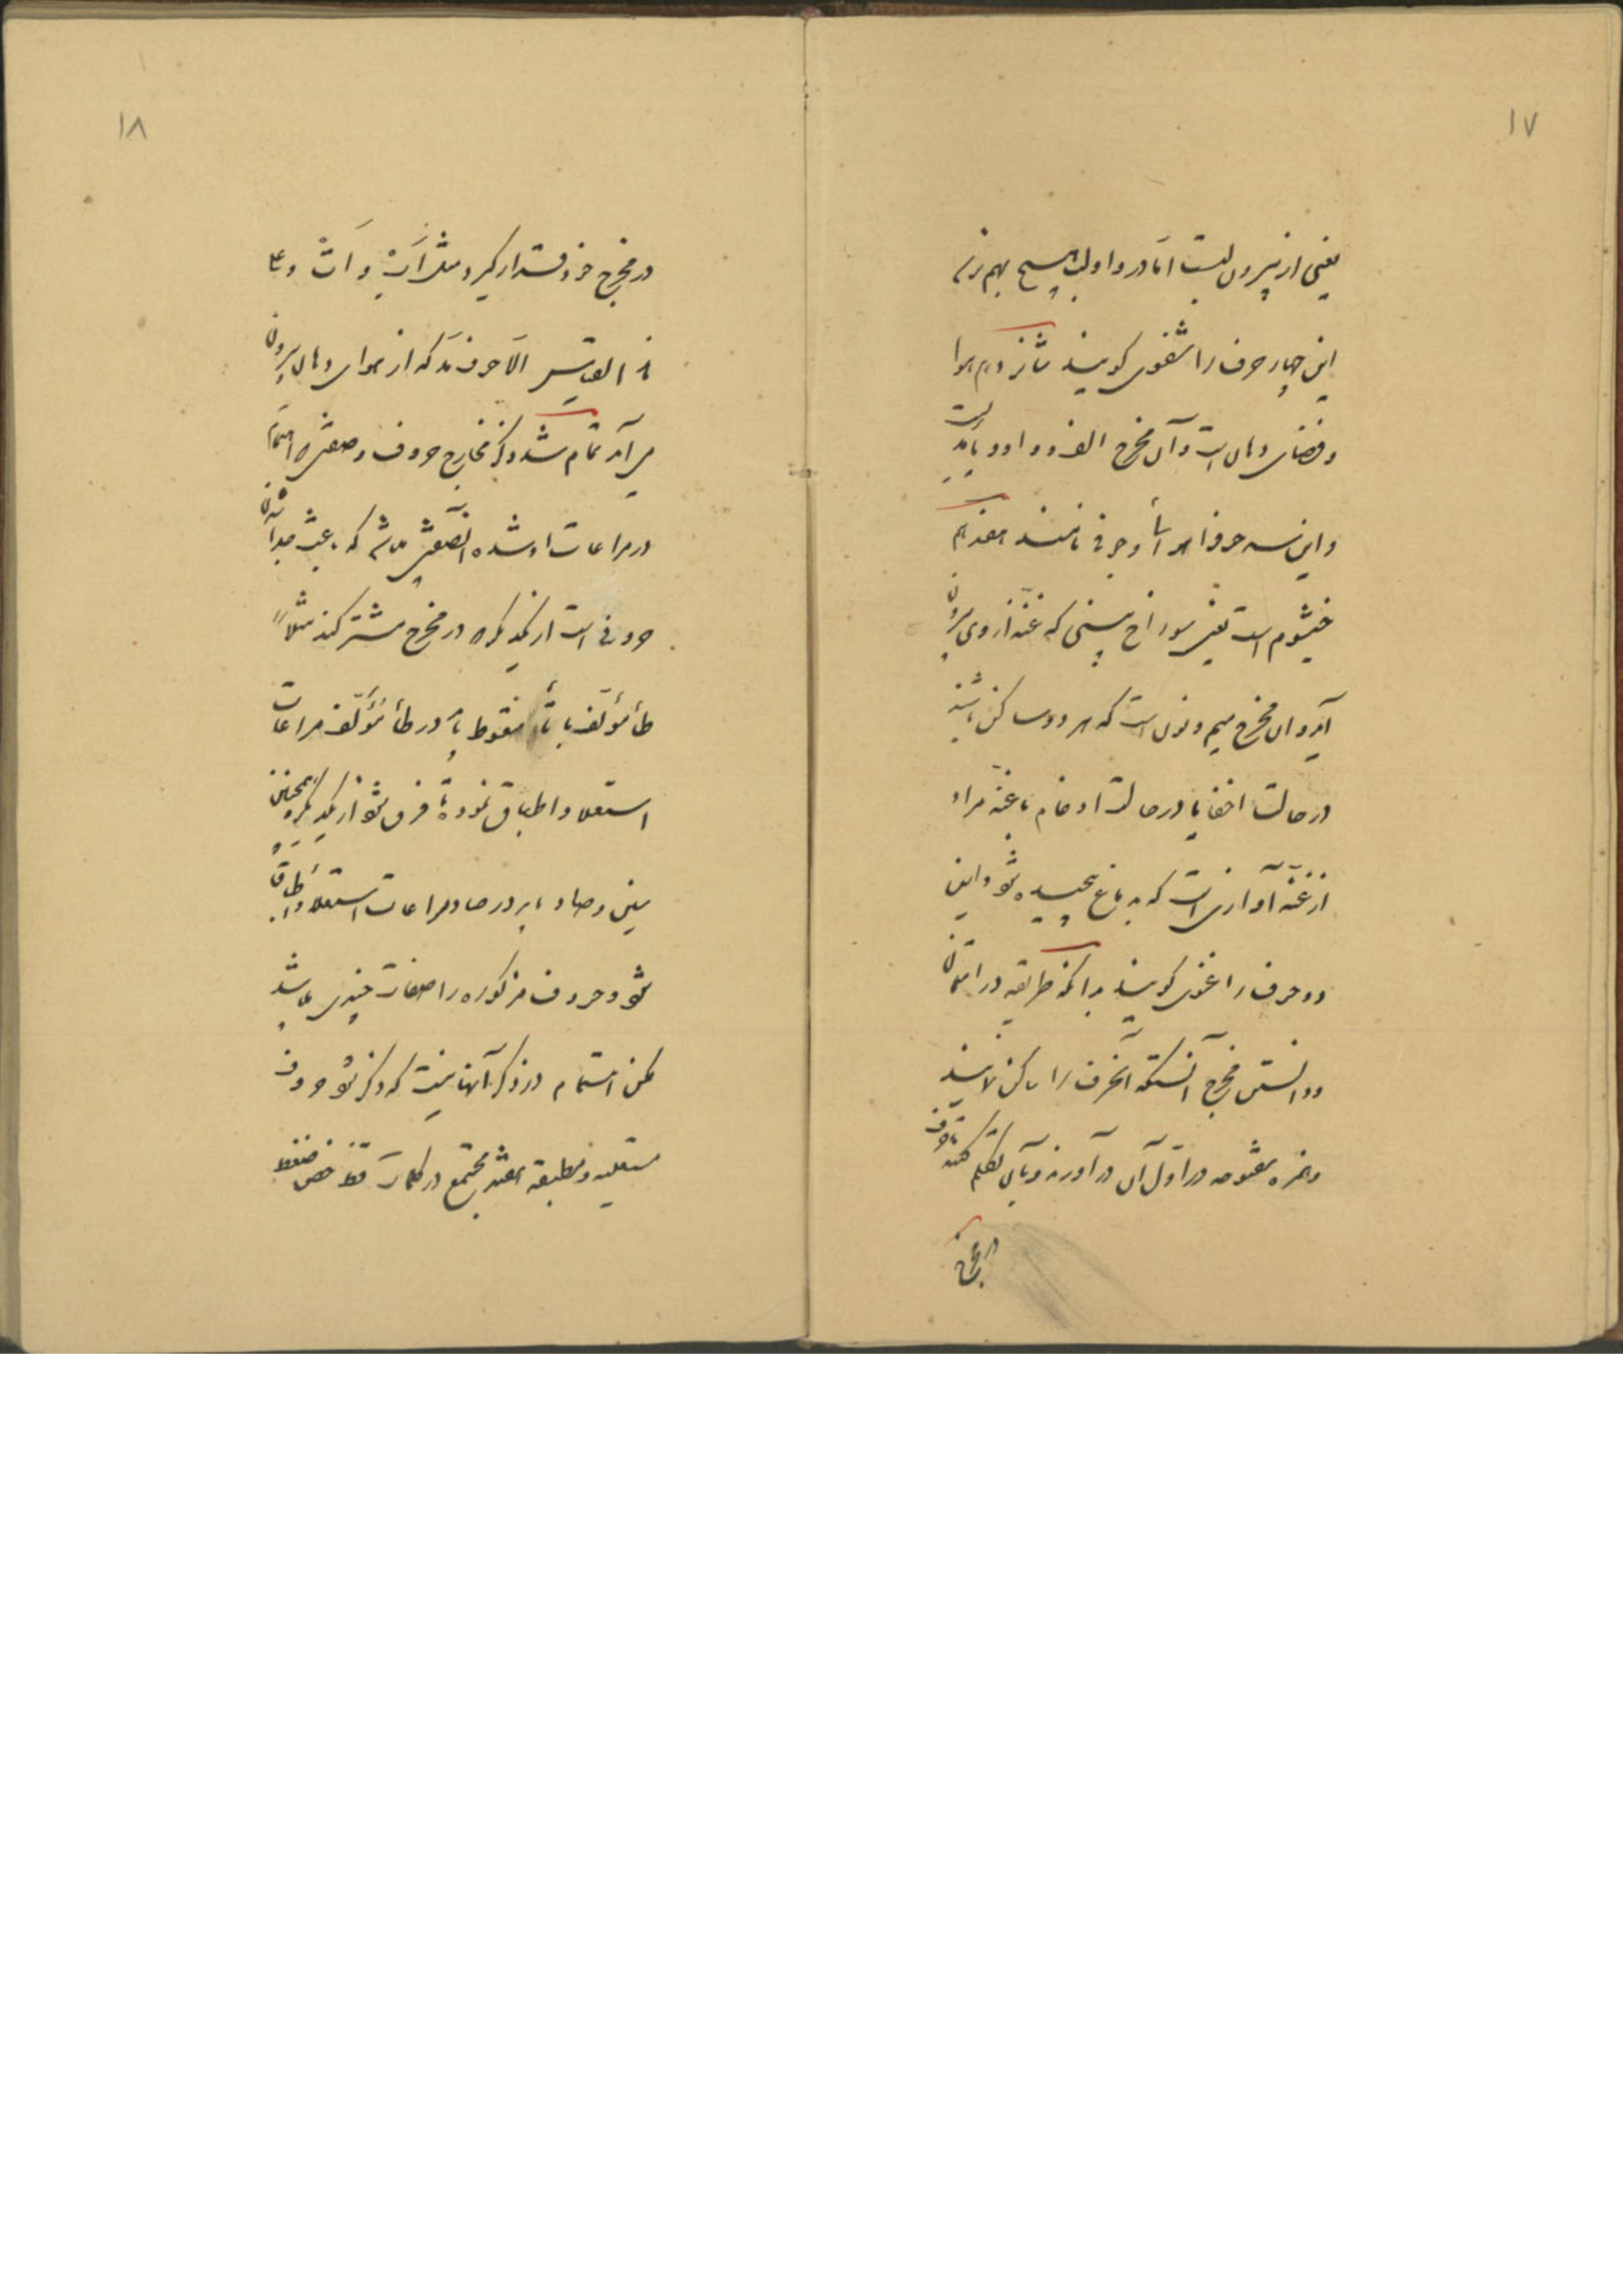 ۱۷
یعنی از بیرون لبست اما در واو لب هیچ بهم نرسد
این چهار حرف را شفوی گویند شانزدهم هوا
و فضای دهان است و آن مخرج الف و واو و یاء مدیست
و این سه حرف را هوائی و جوفی نامند هفدهم
خیشوم است یعنی سوراخ بینی که غنه از وی بیرون
آید و آن مخرج میم و نون است که هر دو ساکن باشند
در حالت اخفا یا در حالت ادغام با غنه مراد
از غنه آوازی است که به دماغ پیچیده شود و این
دو حرف را غنوی گویند بدانکه طریقه در امتحان
دانستن مخرج آنستکه آنحرف را ساکن نمایند
و همزه مفتوحه در اول آن در آورند و بآن تکلم کنند تا حرف
در مخرج
۱۸
در مخرج خود قرار گیرد مثل اَبْ و اَتْ و علی
هذا القیاس الا حروف مد که از هوای دهان بیرون
می آید تمام شد ذکر مخارج حروف و صفتیکه اهتمام
در مراعات او شده آنصفتی باشد که باعث جدا شدن
حروفی است از یکدیگر که در مخرج مشترکند مثلاً
طأ مؤلف با تأ منقوط باید در طأ مؤلف مراعات
استعلا و اطباق نموده تا فرق شود از یکدیگر و همچنین
سین و صاد باید در صاد مراعات استعلا و اطباق
شود و حروف مذکوره را صفات چندی میباشد
لکن اهتمام در ذکر آنها نیست که ذکر شود حروف
مستعلیه و مطبقه هفتند مجتمع در کلمات قظ خص ضغط